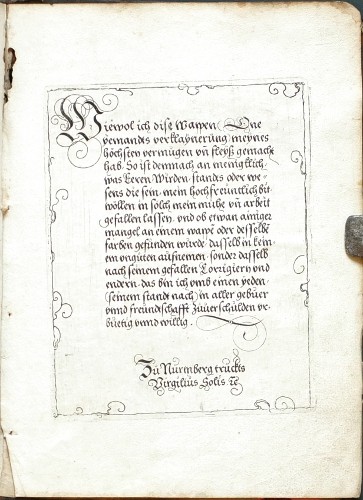 Wiewol ich dise Wappen One
yemandts verklaynerung meynes
höchsten vermügen vn̄ fleyß gemacht
hab. So ist demnach an menigklich
was Eeren Wirden, stands oder we-
sens die sein, mein hochfreuntlich bit
wöllen in solch mein mühe vn̄ arbeit
gefallen lassen, vnd ob etwan ainiger
mangel an einem wapē oder desselbē
farben gefunden würde, dasselb in kein-
em vnguten aufnemen, sonder dasselb
nach seinem gefallen Corrigiern vnd
endern, das bin ich vmb einen yeden
(seinem standt nach) in aller gebüer
vnnd freundschafft Zuuerschulden vr-
büetig vnnd willig.
Zu Nurmberg truckts
Virgilius Solis. ꝛc